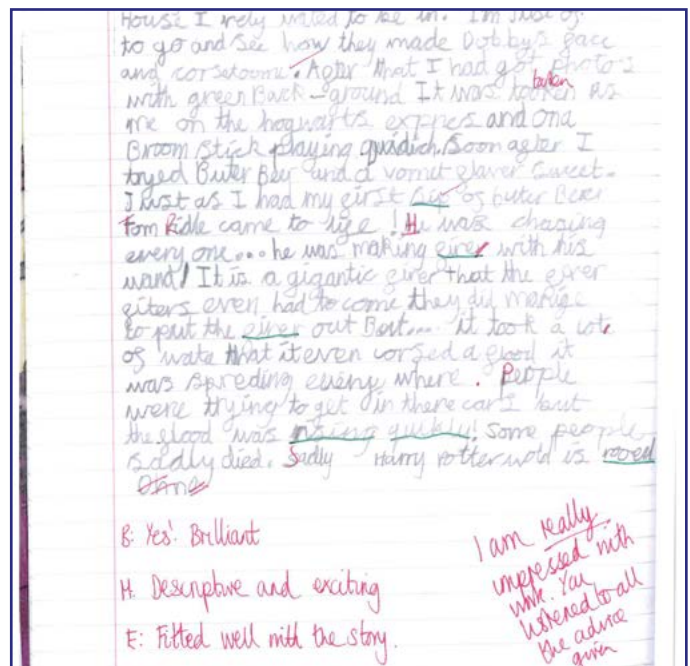 House I rely wated to be in. I'm Just of
to go and See how they made Dobby's face
and corstoome. After that I had got photo's
with green Back-ground It was taken as
taken
me on the hogwarts exppres and ona
Broom Stick playing quidich. Soon after I
tryed Buter Beer and a vomet flaver Sweet.
Just as I had my first Sip of buter Beer
Tom Ridle came to life! He was chasing
every one... he was making firer with his
wand! It is a gigantic firer that the firer
fiters even had to come they did manige
to put the firer out But... it took a lot
of wate that it even corsed a flood it
was spreding eveny where. People
were trying to get in there car's but
the flood was rising quickly! Some people
sadly died. Sadly Harry Potter wold is
B: Yes! Brilliant
H. Descriptive and exciting
E: Fitted well with the story.
I am really
impressed with
work. You
listened to all
the advice
given